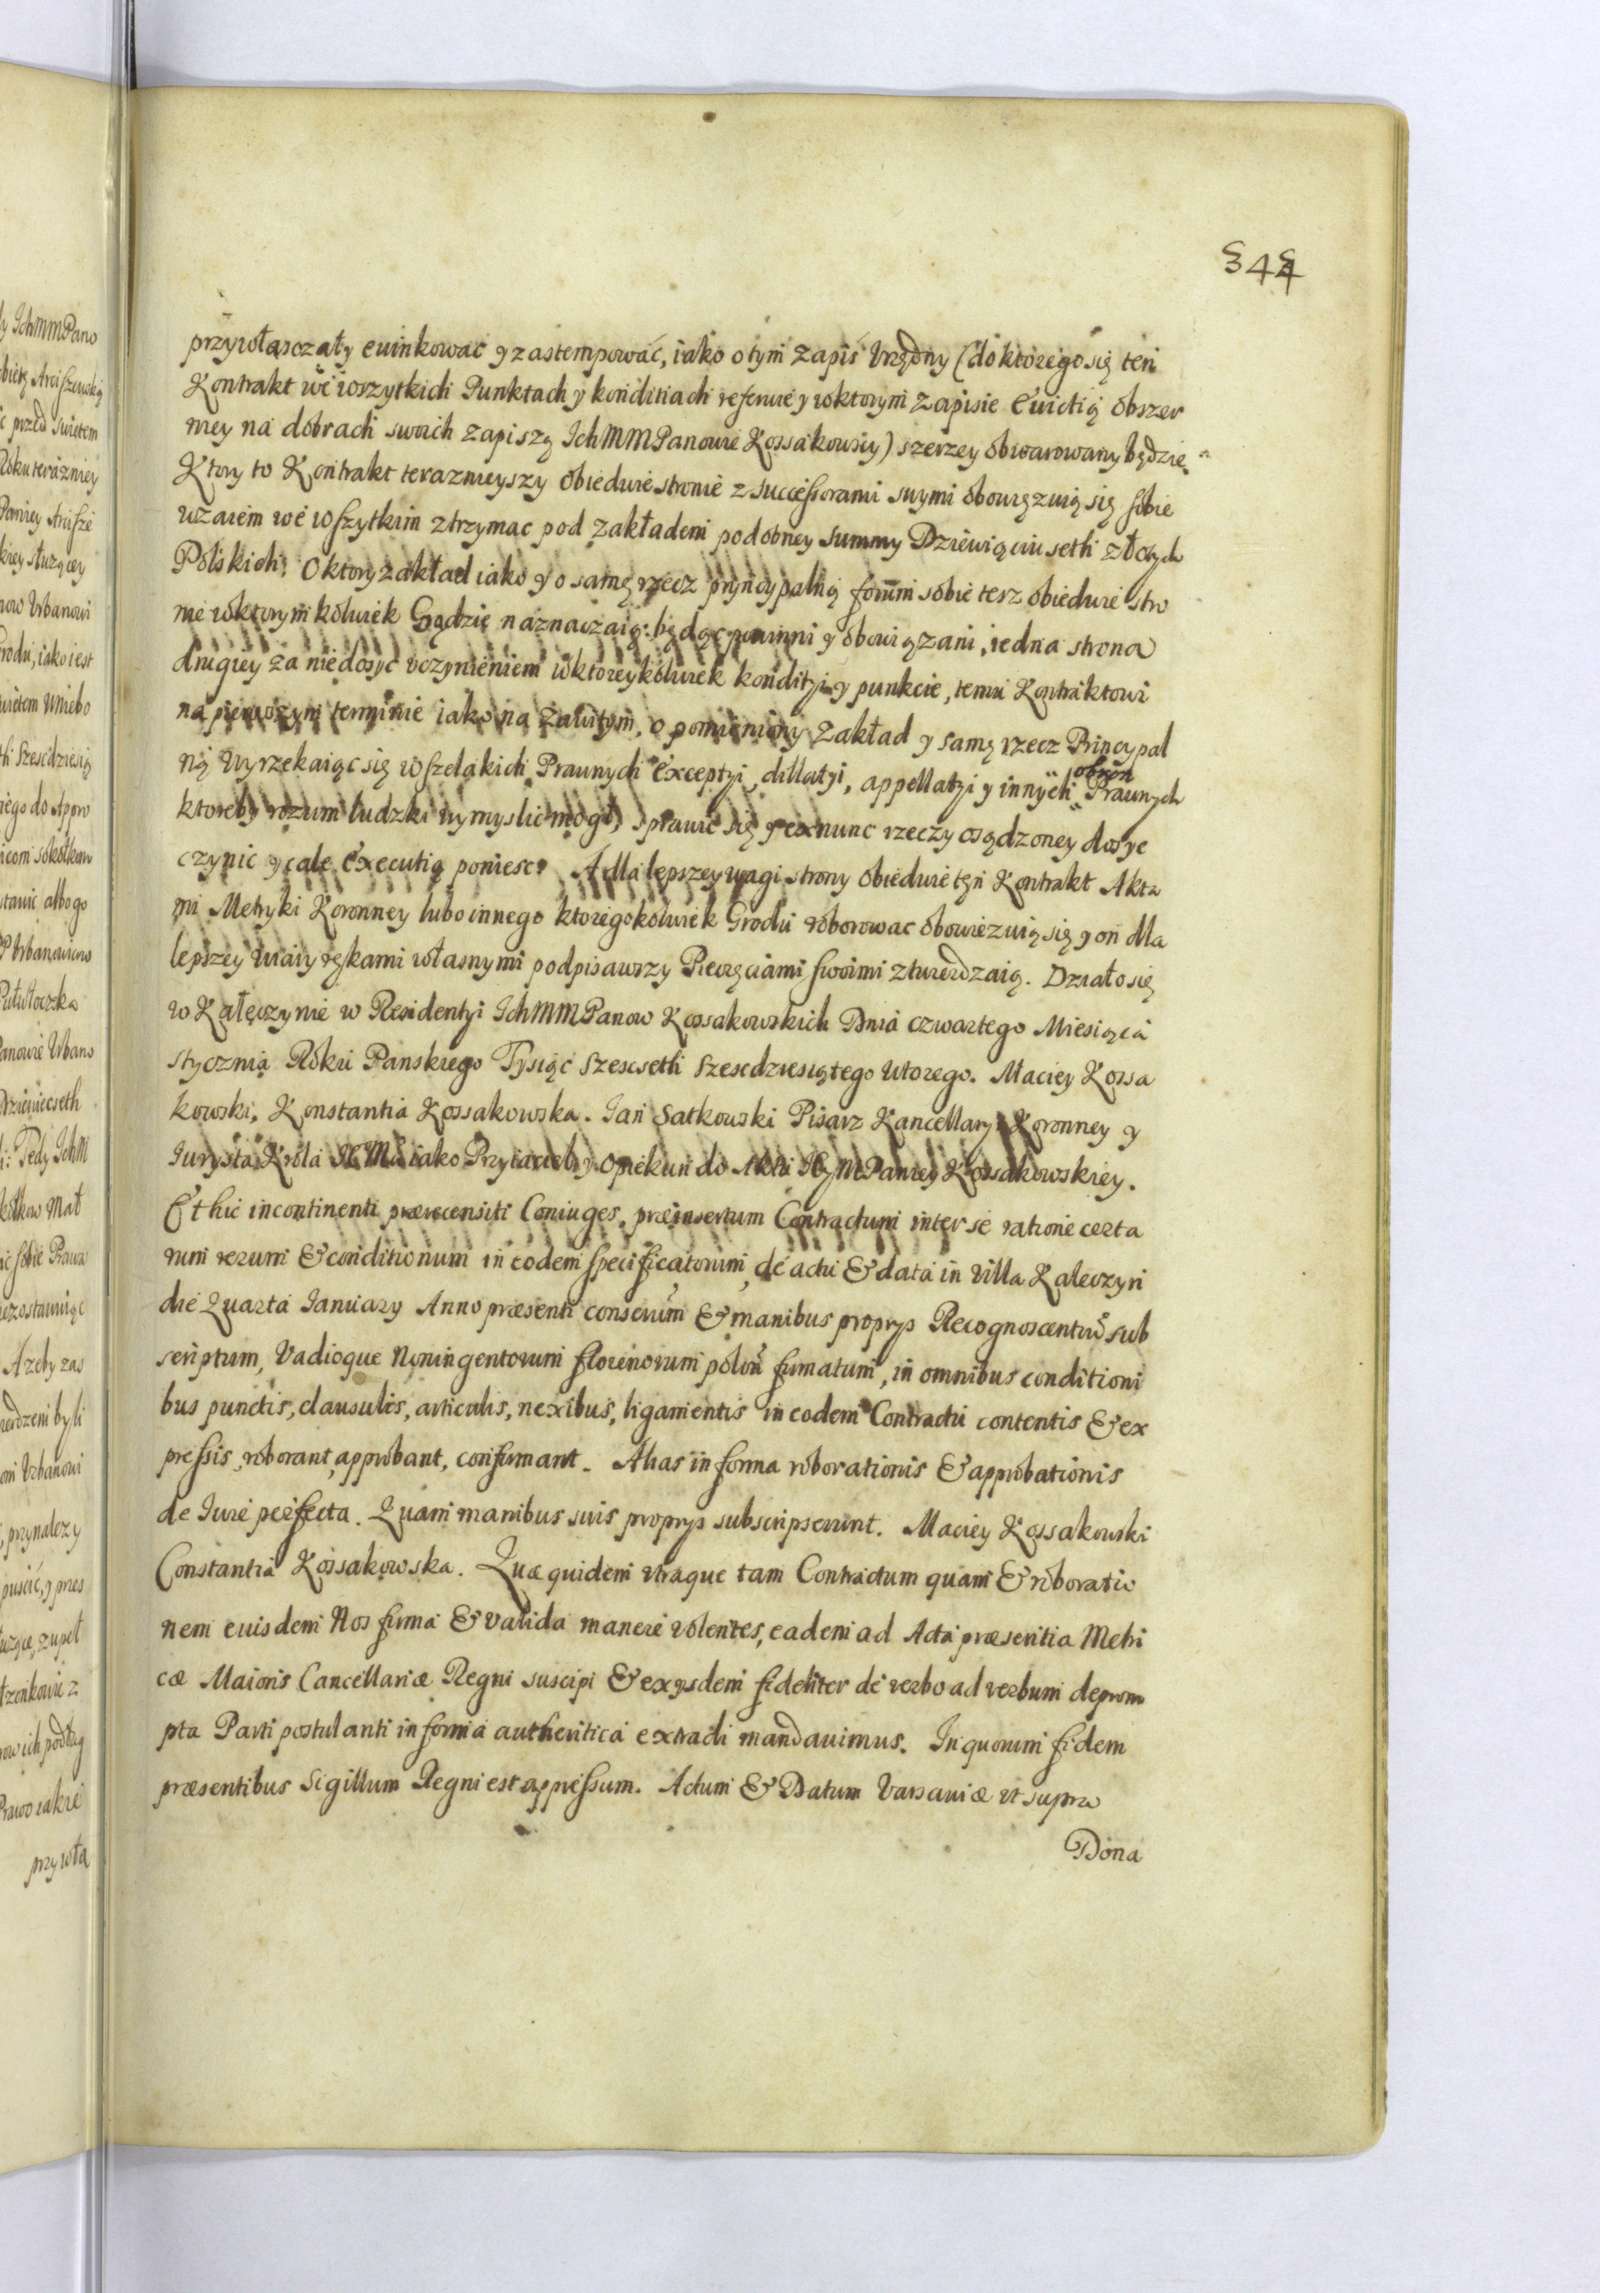 344
przywłasczały ewinkować y zastempować, iako o tym zapis Vrzędny (do ktorego się ten
Kontrakt we wszytkich Punktach y konditiach referuie y w ktorym zapisie Ewictią obszer
niey na dobrach swoich zapiszą IchMMPanowie Kossakowscy) szerzey obwarowany będzie.
Ktory to Kontrakt teraznieyszy obiedwie stronie z successorami swymi obowięzuią się sobie
wzaiem we wszytkim ztrzymac pod zakładem podobney summy Dziewiąciuseth złotych
Polskich: O ktory zakład iako y o samę rzecz pryncypalną forum sobie tesz obiedwie stro
nie w ktorymkolwiek Grodzie naznaczaią: będąc powinni y obowiązani, iedna strona
drugiey za niedosyc vczynieniem w ktoreykolwiek kondityi y punkcie, temu Kontraktowi
na pierwszym terminie iako na zawitym, o pomieniony zakład y samę rzecz Principal
ną wyrzekaiąc się wszelakich Prawnych exceptyi, dillatyi, appellatyi y innych obron Prawnych
ktoreby rozum ludzki wymyslic mogł, sprawic się y ex nunc rzeczy osądzoney dosyc
czynic y całe Executią poniesc. A dla lepszey wagi strony obiedwie ten Kontrakt Akta
mi Metryki Koronney lubo innego ktoregokolwiek Grodu roborowac obowiezuią się y on dla
lepszey wiary rękami własnymi podpisawszy Pieczęciami swoimi ztwierdzaią. Działo się
w Kałęczynie w Residentyi IchMMPanow Kossakowskich Dnia czwartego Miesiąca
stycznia Roku Panskiego Tysiąc szescseth szescdziesiątego wtorego. Maciey Kossa
kowski, Konstantia Kossakowska. Ian Satkowski Pisarz Kancellaryi Koronney y
Iurysta Krola IEMci iako Przyiaciel y Opiekun do Aktu IEyMPaniey Kossakowskiey.
Et hic incontinenti prærecensiti Coniuges, præinsertum Contractum inter se ratione certa
rum rerum & conditionum in eodem specificatorum, de actu & data in villa Kaleczyn
die Quarta Ianuary Anno præsenti conserum & manibus proprys Recognoscentium sub
scriptum, Vadioque Noningentorum florenorum polon firmatum, in omnibus conditioni
bus punctis, clausulis, articulis, nexibus, ligamentis in eodem Contractu contentis & ex
pressis, roborant, approbant, confirmant. Alias in forma roborationis & approbationis
de Iure perfecta. Quam manibus suis proprys subscripserunt. Maciey Kossakowski
Constantia Kossakowska. Quæ quidem vtraque tam Contractum quam & roboratio
nem eiusdem Nos firma & valida manere volentes, eadem ad Acta præsentia Metri
cæ Maioris Cancellariæ Regni suscipi & ex ysdem fideliter de verbo ad verbum deprom
pta Parti postulanti in forma authentica extradi mandauimus. In quorum fidem
præsentibus Sigillum Regni est appressum. Actum & Datum Varsauiæ vt supra
Dona